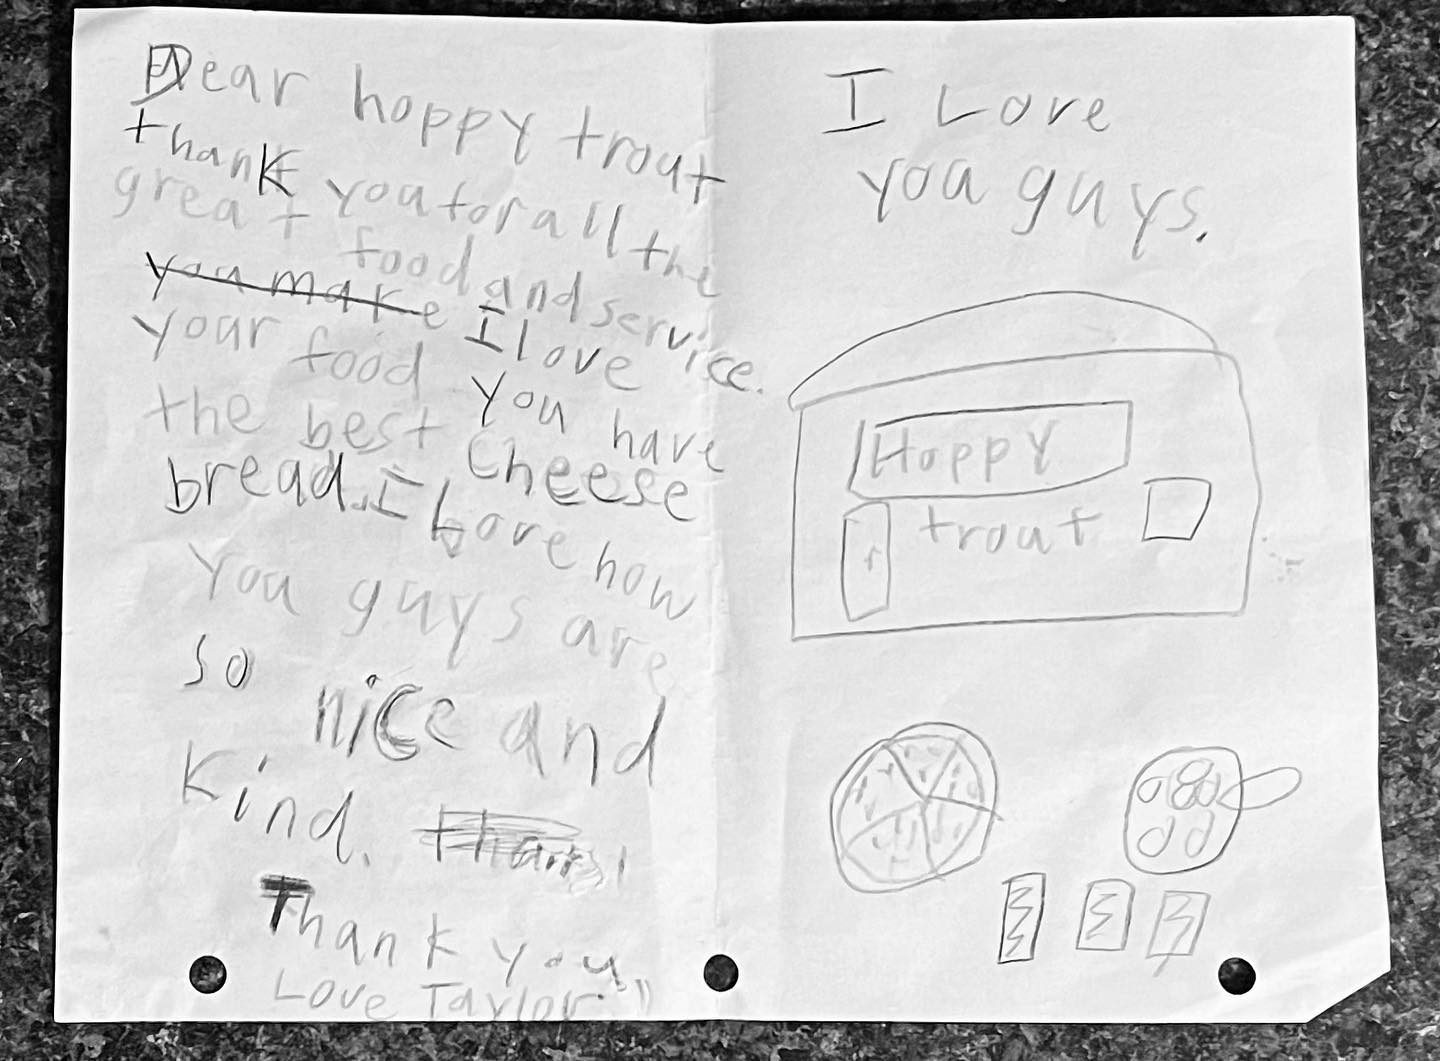 Dear hoppy trout
thank you for all the
great food and service.
you make I love
your food you have
the best cheese
bread. I love how
you guys are
so nice and
kind.
Thank you
Love Taylor
I Love
you guys.
Hoppy
trout